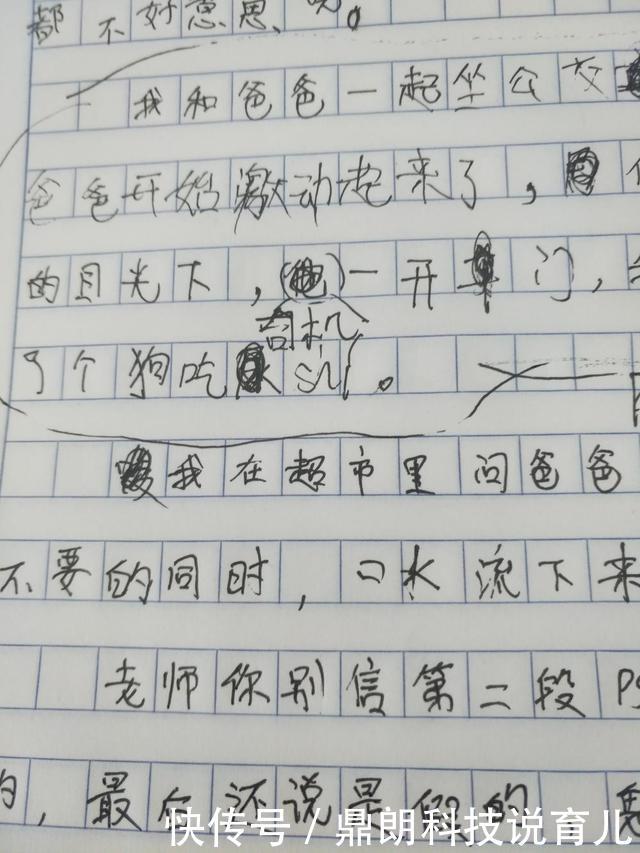 都不好意思吧。
我和爸爸一起坐公交
爸爸开始激动起来了，
的目光下，一开车门，
司机
了个狗吃shi。
我在超市里问爸爸
不要的同时，口水流下来
老师你别信第二段
，最后还说是假的
快传号/鼎朗科技说育儿